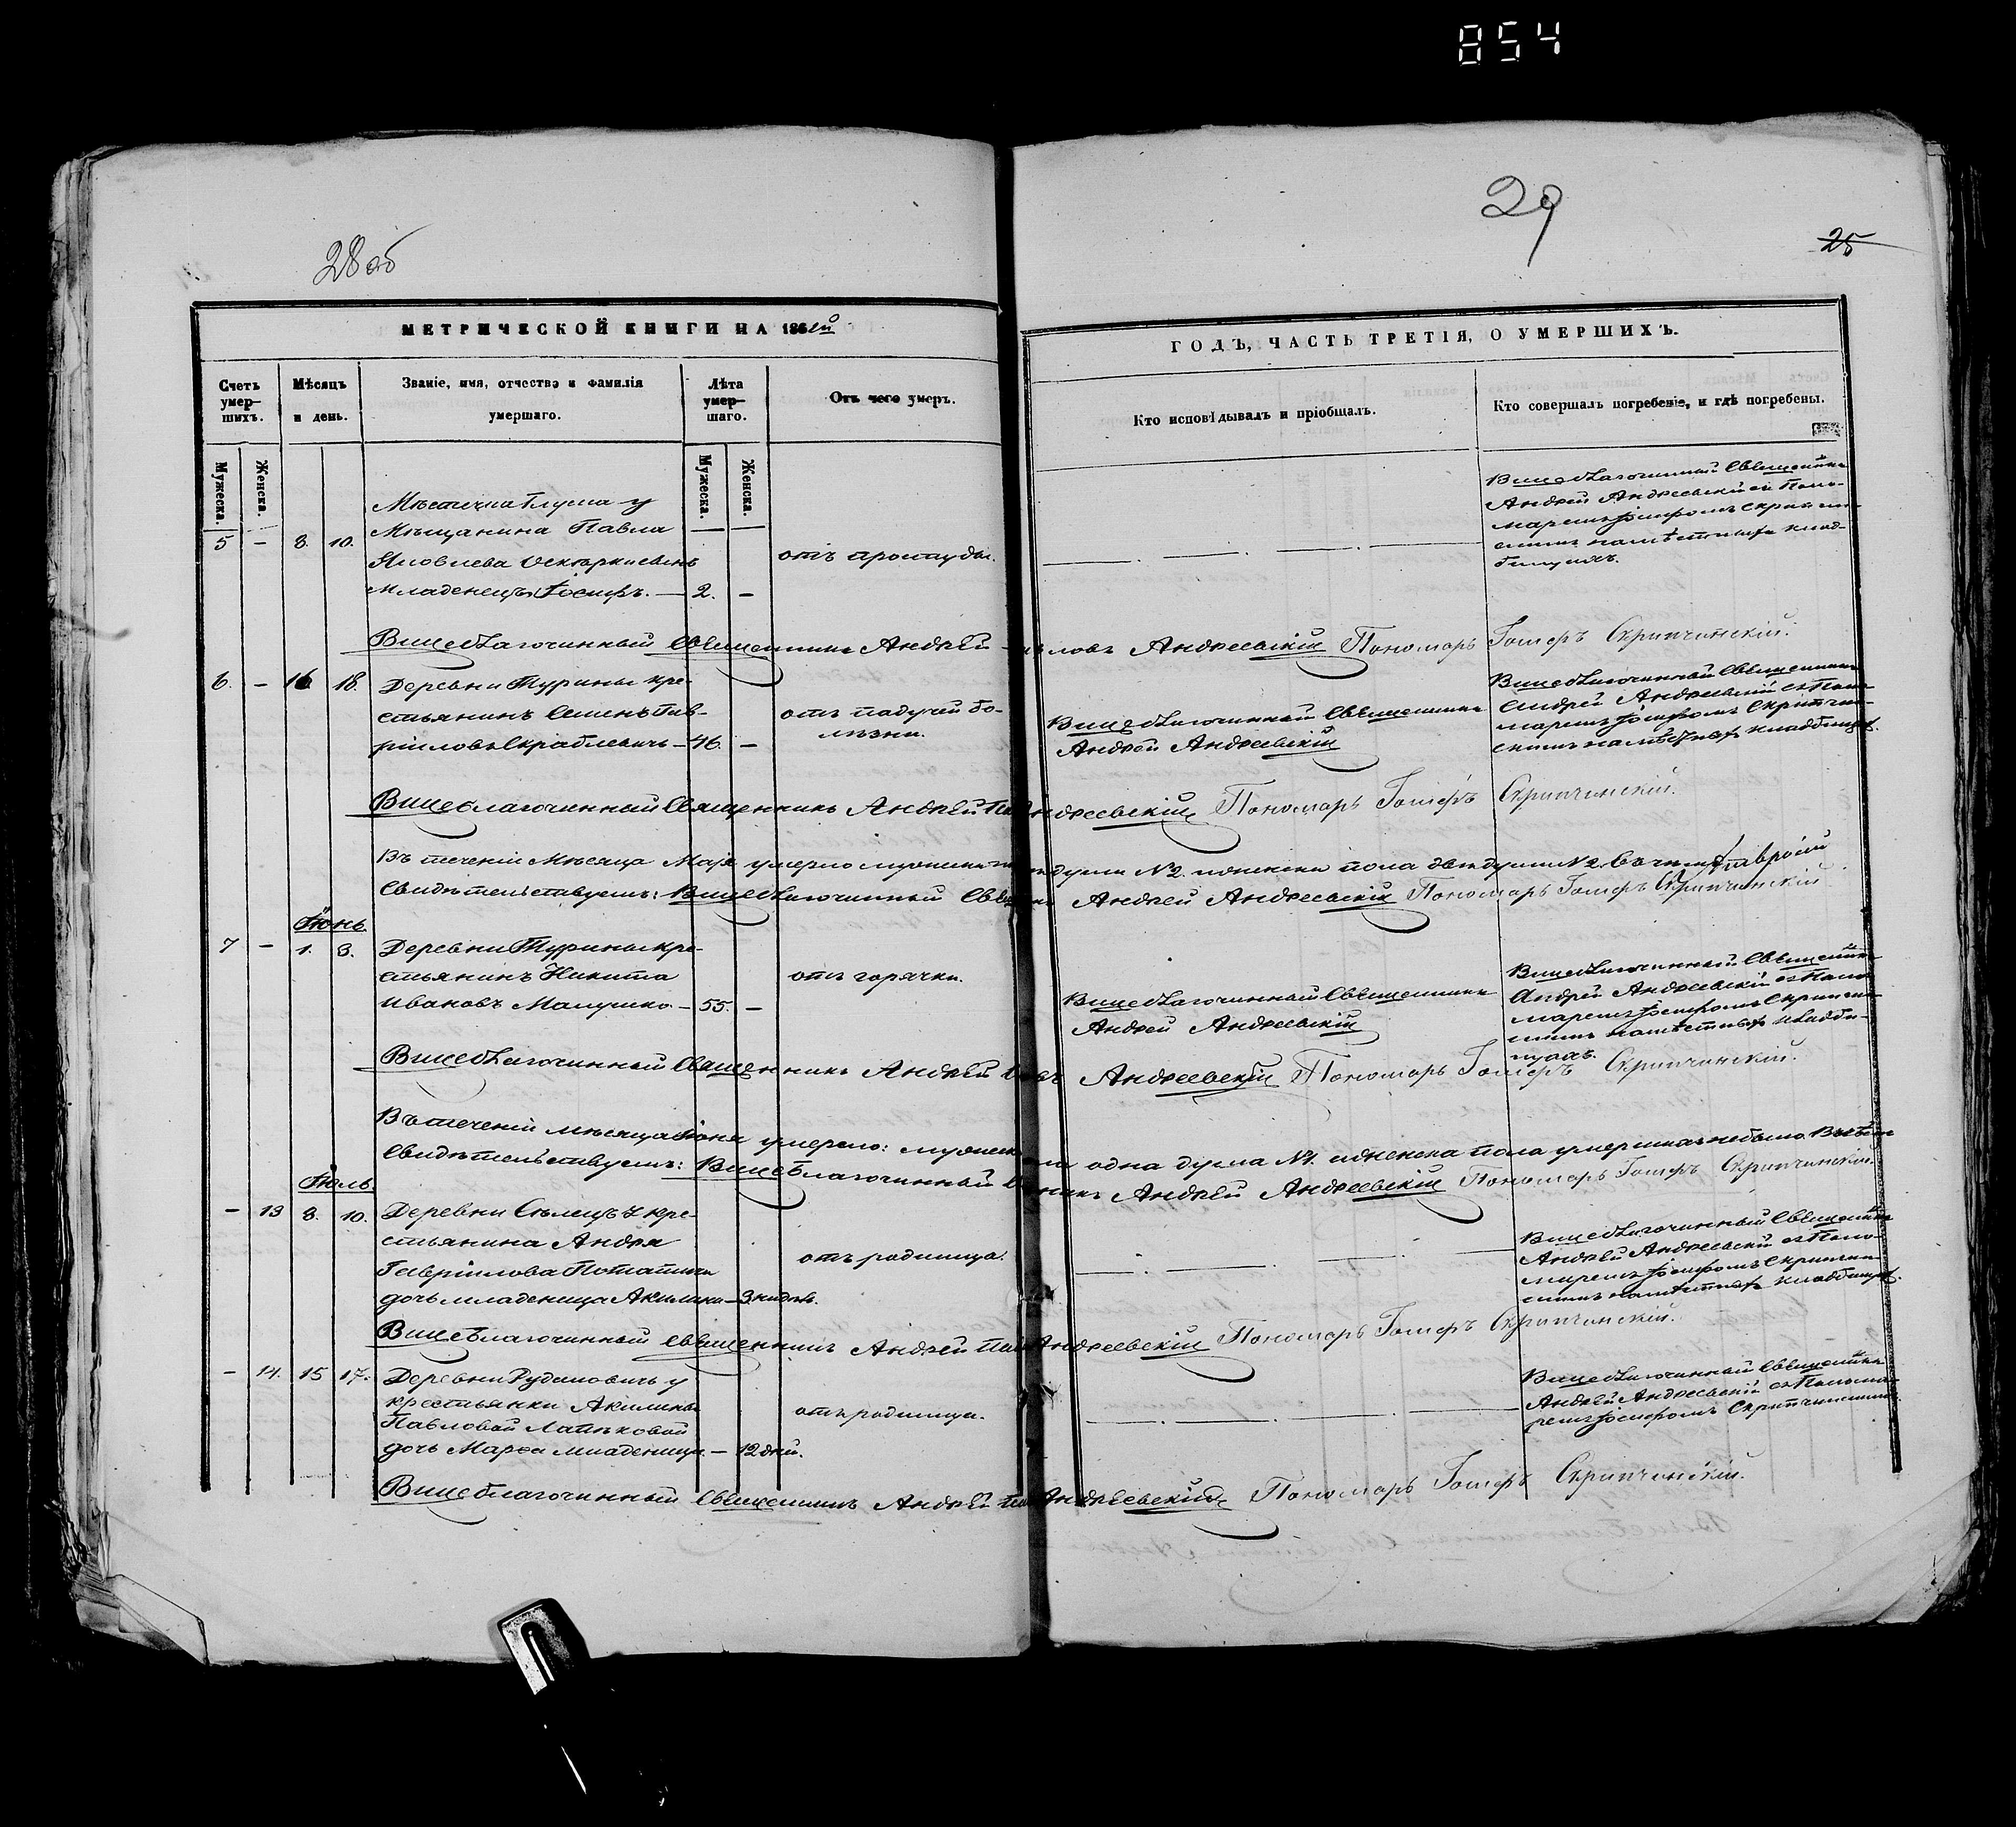 854
28 об
29
25
МЕТРИЧЕСКОЙ КНИГИ НА 186
ГОДЪ, ЧАСТЬ ТРЕТІЯ, О УМЕРШИХЪ.
Счетъ умер-шихъ.
Мѣсяцъ и день.
Званіе, имя, отчество и фамилія умершаго.
Лѣта умер-шаго.
Отъ чего умеръ.
Кто исповѣдывалъ и пріобщалъ.
Кто совершалъ погребеніе, и гдѣ погребены.
Мужеска.
Женска.
Мужеска.
Женска.
5 — 8. 10.
Мѣстечка Глуска у
Мѣщанина Павла
Яковлева
Младенецъ Іосифъ. — 2. —
отъ простуды.
Вицеблагочинный Священникъ
Андрей Андреевскій съ Поно-
маремъ Іосифомъ Скрипчин-
скимъ на мѣстныхъ клад-
бищахъ.
Вицеблагочинный Священникъ Андрей Андреевскій Пономарь Іосифъ Скрипчинскій.
6. — 16 18.
Деревни Турины кре-
стьянинъ Семенъ Гав-
ріиловъ Скраблевичъ — 46. —
отъ падучей бо-
лѣзни.
Вицеблагочинный Священникъ
Андрей Андреевскій
Вицеблагочинный Священникъ
Андрей Андреевскій съ Поно-
маремъ Іосифомъ Скрипчин-
скимъ на мѣстныхъ кладбищахъ.
Вицеблагочинный Священникъ Андрей Андреевскій Пономарь Іосифъ Скрипчинскій.
Въ теченіи Мѣсяца Маія умерло мужеска души №2. и женска пола двѣ души №2. Въ чемъ
Свидѣтельствуемъ: Вицеблагочинный Андрей Андреевскій Пономарь Іосифъ Скрипчинскій
Іюнь
7 — 1. 3.
Деревни Турины кре-
стьянинъ Никита
Ивановъ Малушко — 55. —
отъ горячки.
Вицеблагочинный Священникъ
Андрей Андреевскій
Вицеблагочинный Священникъ
Андрей Андреевскій съ Поно-
маремъ Іосифомъ Скрипчин-
скимъ на мѣстныхъ кладби-
щахъ.
Вицеблагочинный Священникъ Андрей Андреевскій Пономарь Іосифъ Скрипчинскій.
Въ теченіи мѣсяца Іюня умерло: мужеска одна душа №1. и женска пола умершихъ небыло. Въ чемъ
Свидѣтельствуемъ: Вицеблагочинный Андрей Андреевскій Пономарь Іосифъ Скрипчинскій.
Іюль.
— 13 8. 10.
Деревни Сѣлецъ у кре-
стьянина Андрея
Гавріилова
дочь младеница Акилина — 3 недѣл.
отъ родимца.
Вицеблагочинный Священникъ
Андрей Андреевскій съ Поно-
маремъ Іосифомъ Скрипчин-
скимъ на мѣстныхъ кладбищахъ.
Вицеблагочинный Священникъ Андрей Андреевскій Пономарь Іосифъ Скрипчинскій.
— 14. 15 17.
Деревни Рудановичъ у
крестьянки Акилины
Павловой
дочь Марѳа младеница. — 12 дней.
отъ родимца.
Вицеблагочинный Священникъ
Андрей Андреевскій съ Понома-
ремъ Іосифомъ Скрипчинскимъ
Вицеблагочинный Священникъ Андрей Андреевскій Пономарь Іосифъ Скрипчинскій.